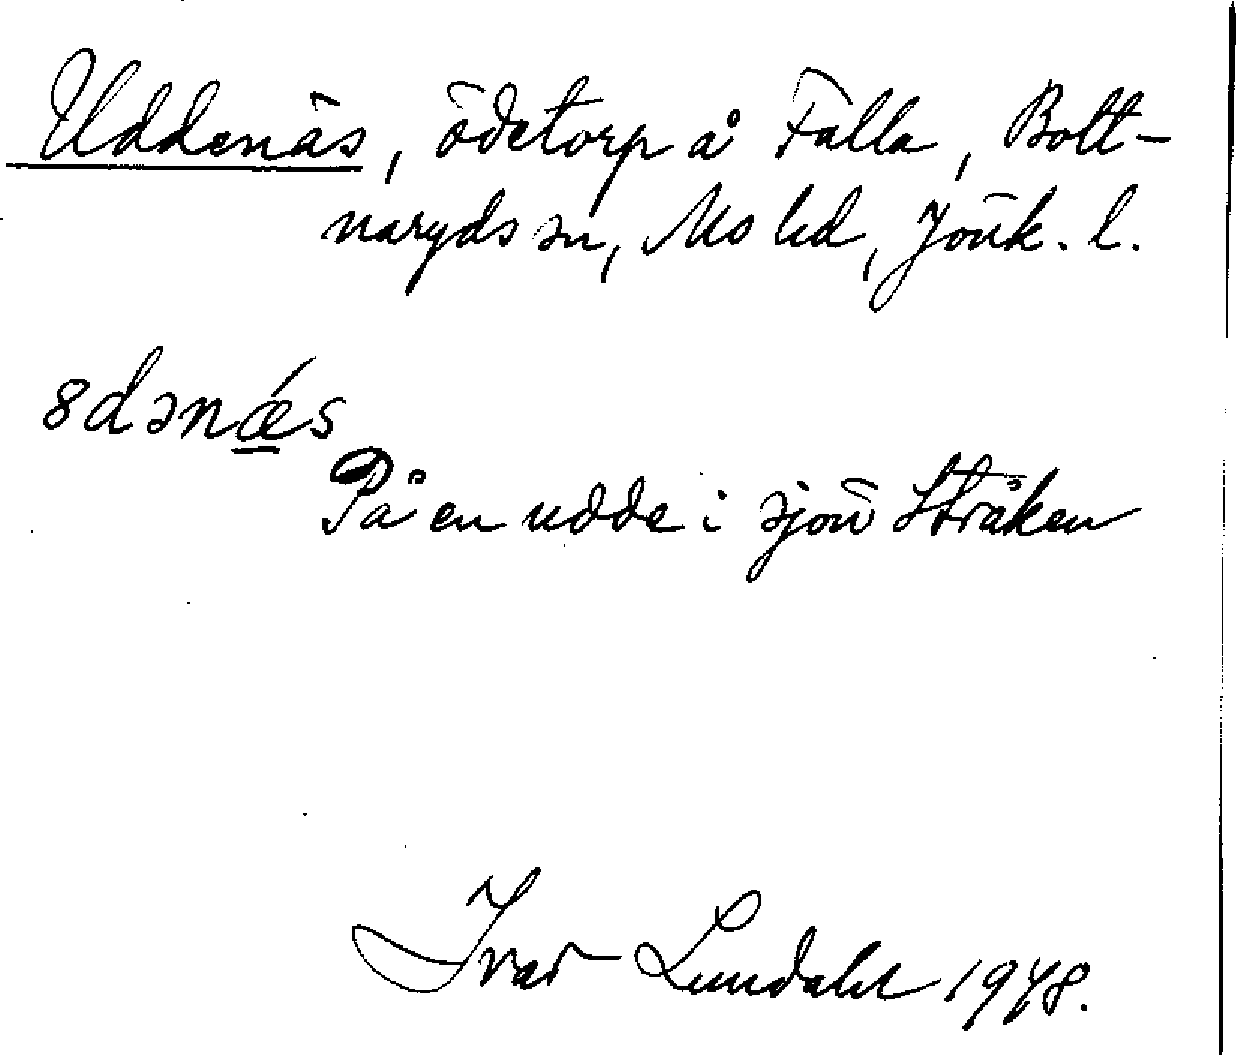 Uddenäs, ödetorp å Falla, Bott-
naryds sn, Mo hd, Jönk. l.
8dənǽs
På en udde i sjön Stråken
Ivar Lundahl 1948.